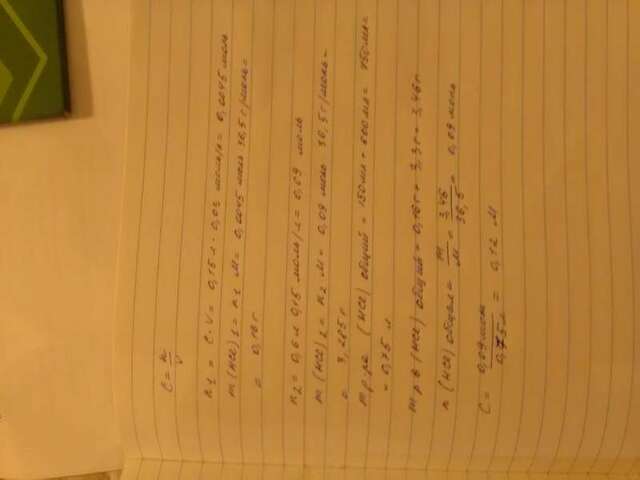 C = n/V
n1 = C·V = 0,15 л · 0,03 моль/л = 0,0045 моль
m (HCl) 1 = n1 M = 0,0045 моль 36,5 г/моль =
= 0,16 г
n2 = 0,6 л 0,15 моль/л = 0,09 моль
m (HCl) 2 = n2 M = 0,09 моль 36,5 г/моль =
= 3,285 г
m р-ра (HCl) общий = 150 мл + 600 мл = 750 мл =
= 0,75 л
m р-в (HCl) общий = 0,16 г + 3,3 г = 3,46 г
n (HCl) общая = m/M = 3,46/36,5 = 0,09 моль
C = 0,09 моль/0,75 л = 0,12 М